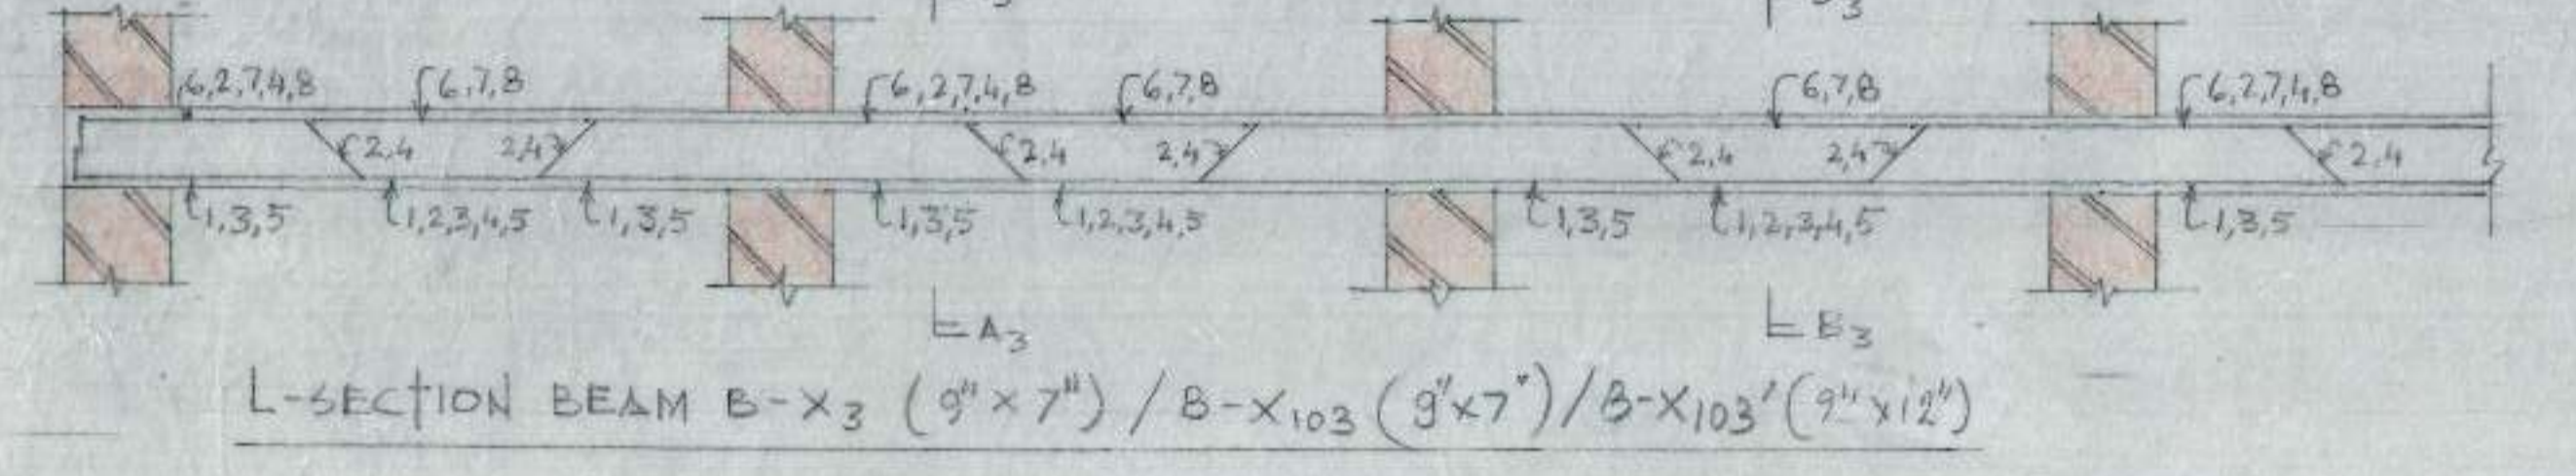 6,2,7,4,8 6,7,8 6,2,7,4,8 6,7,8 6,7,8 6,2,7,4,8
2.4 2,4 2.4 2,4 2.4 2,4 2.4
1,3,5 1,2,3,4,5 1,3,5 1,3,5 1,2,3,4,5 1,3,5 1,2,3,4,5 1,3,5
A3 B3
L-SECTION BEAM B-X3 (9"x7") / B-X103 (9"x7") / B-X103' (9"x12")